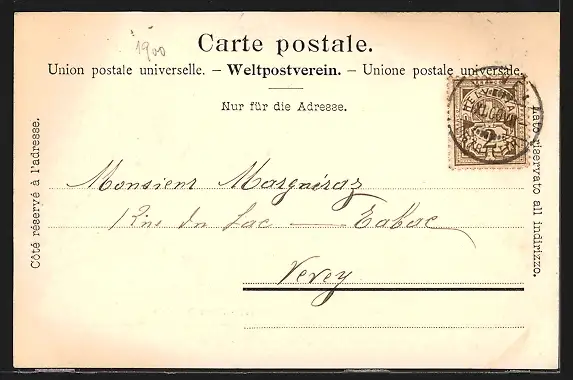 1900
Carte postale.
Union postale universelle. – Weltpostverein. – Unione postale universale.
Nur für die Adresse.
Côté réservé à l'adresse.
Lato riservato all indirizzo.
Monsieur Margnéraz
Rue du Lac — Tabac
Vevey
2